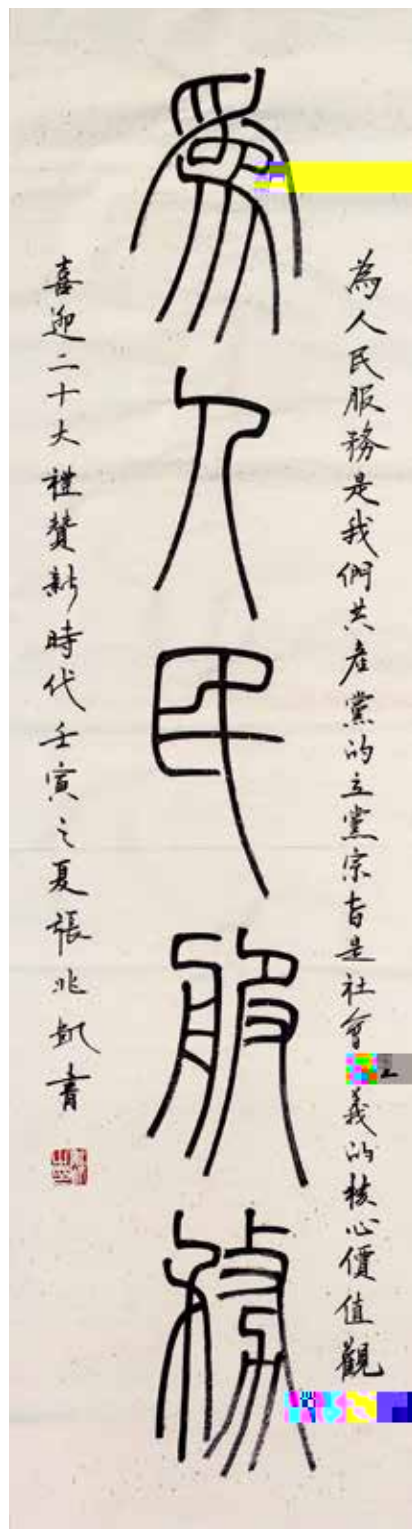 為人民服務是我們共產黨的立黨宗旨是社會 義的核心價值觀
為人民服務
喜迎二十大禮贊新時代壬寅之夏張兆凱書